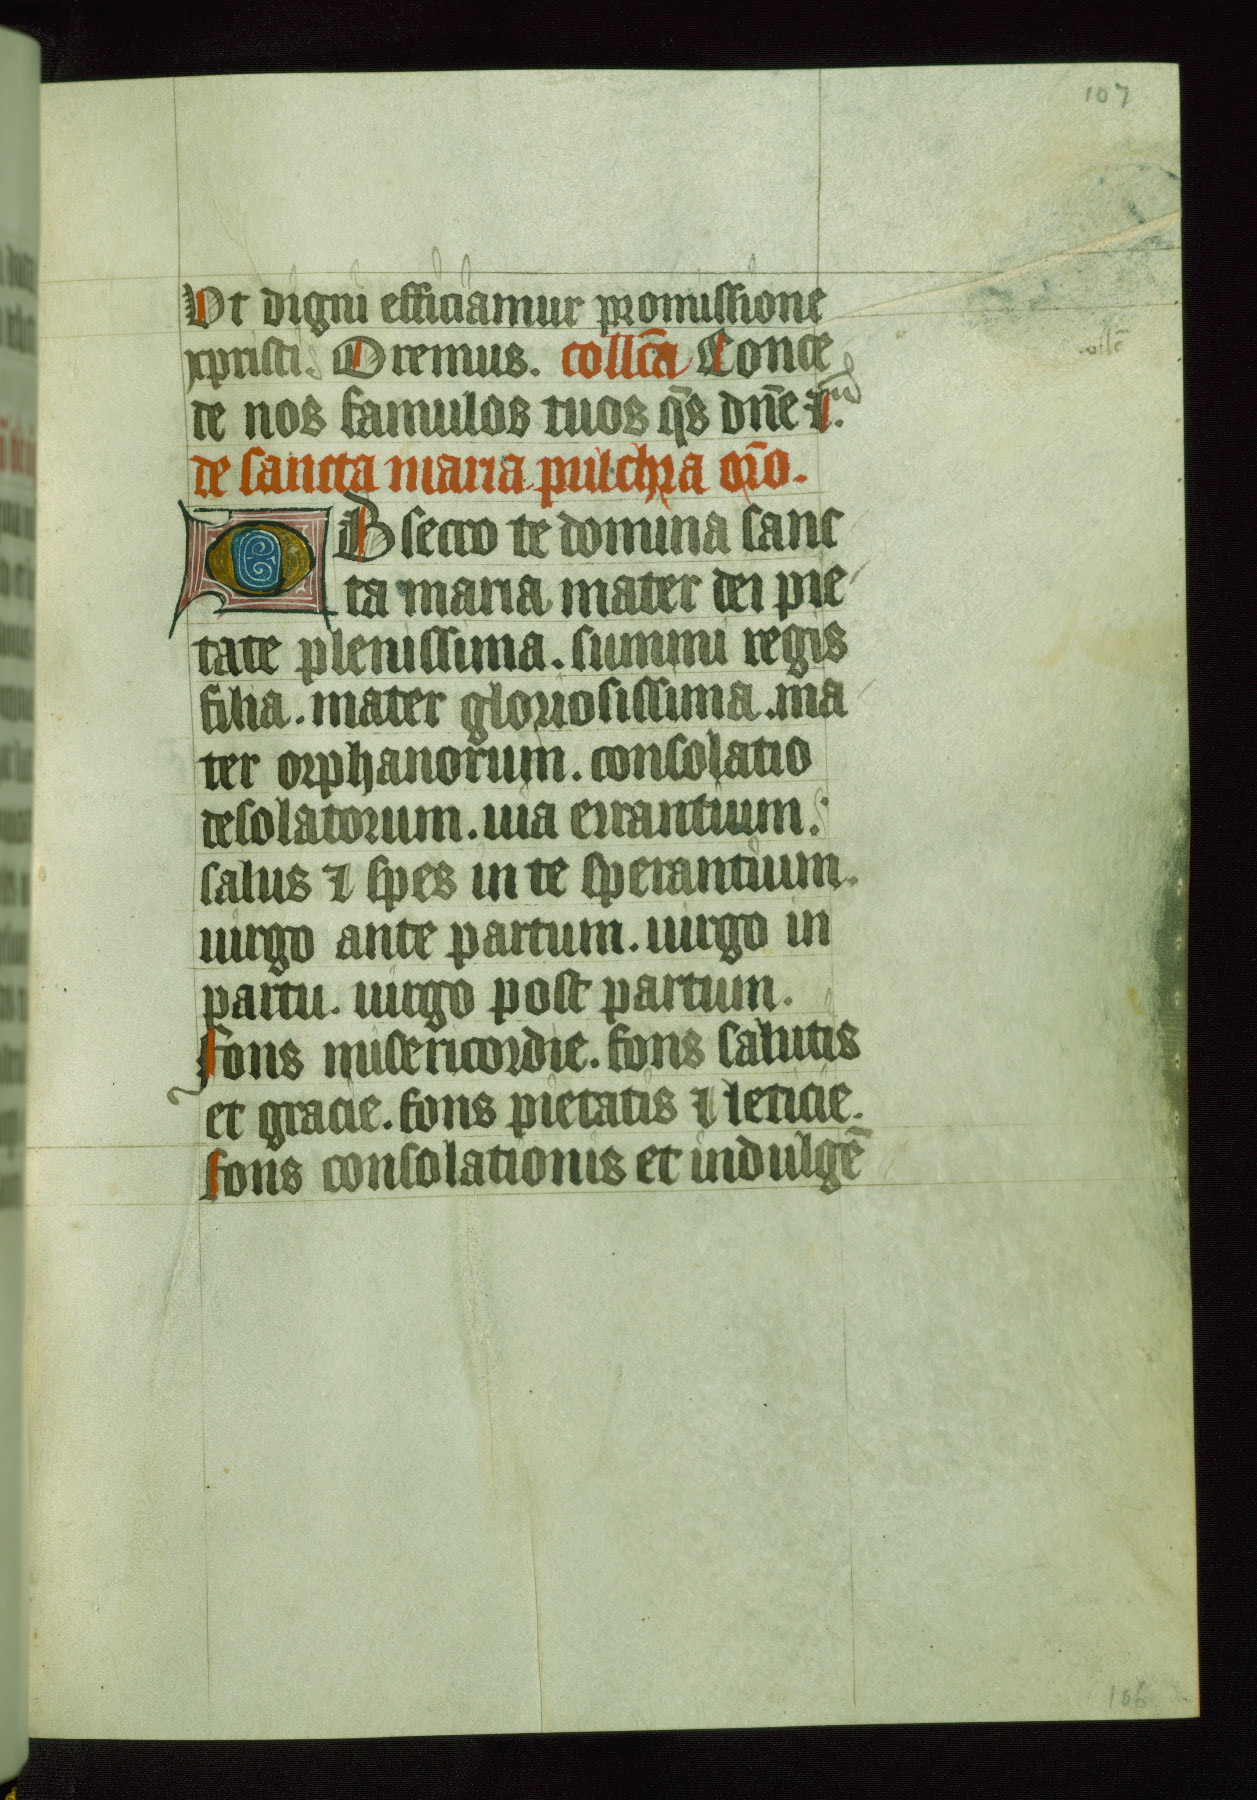 107
Vt digni efficiamur promissione
xpristi. Oremus. collc̄a Conce
de nos famulos tuos q̄s dn̄e ⁊.
de sancta maria pulchra or̄o.
OBsecro te domina sanc
ta maria mater dei pie
tate plenissima. summi regis
filia. mater gloriosissima. ma
ter orphanorum. consolatio
desolatorum. uia errantium.
salus ⁊ spes in te sperantium.
uirgo ante partum. uirgo in
partu. uirgo post partum.
fons misericordie. fons salutis
et gracie. fons pietatis ⁊ leticie.
fons consolationis et indulgē
106